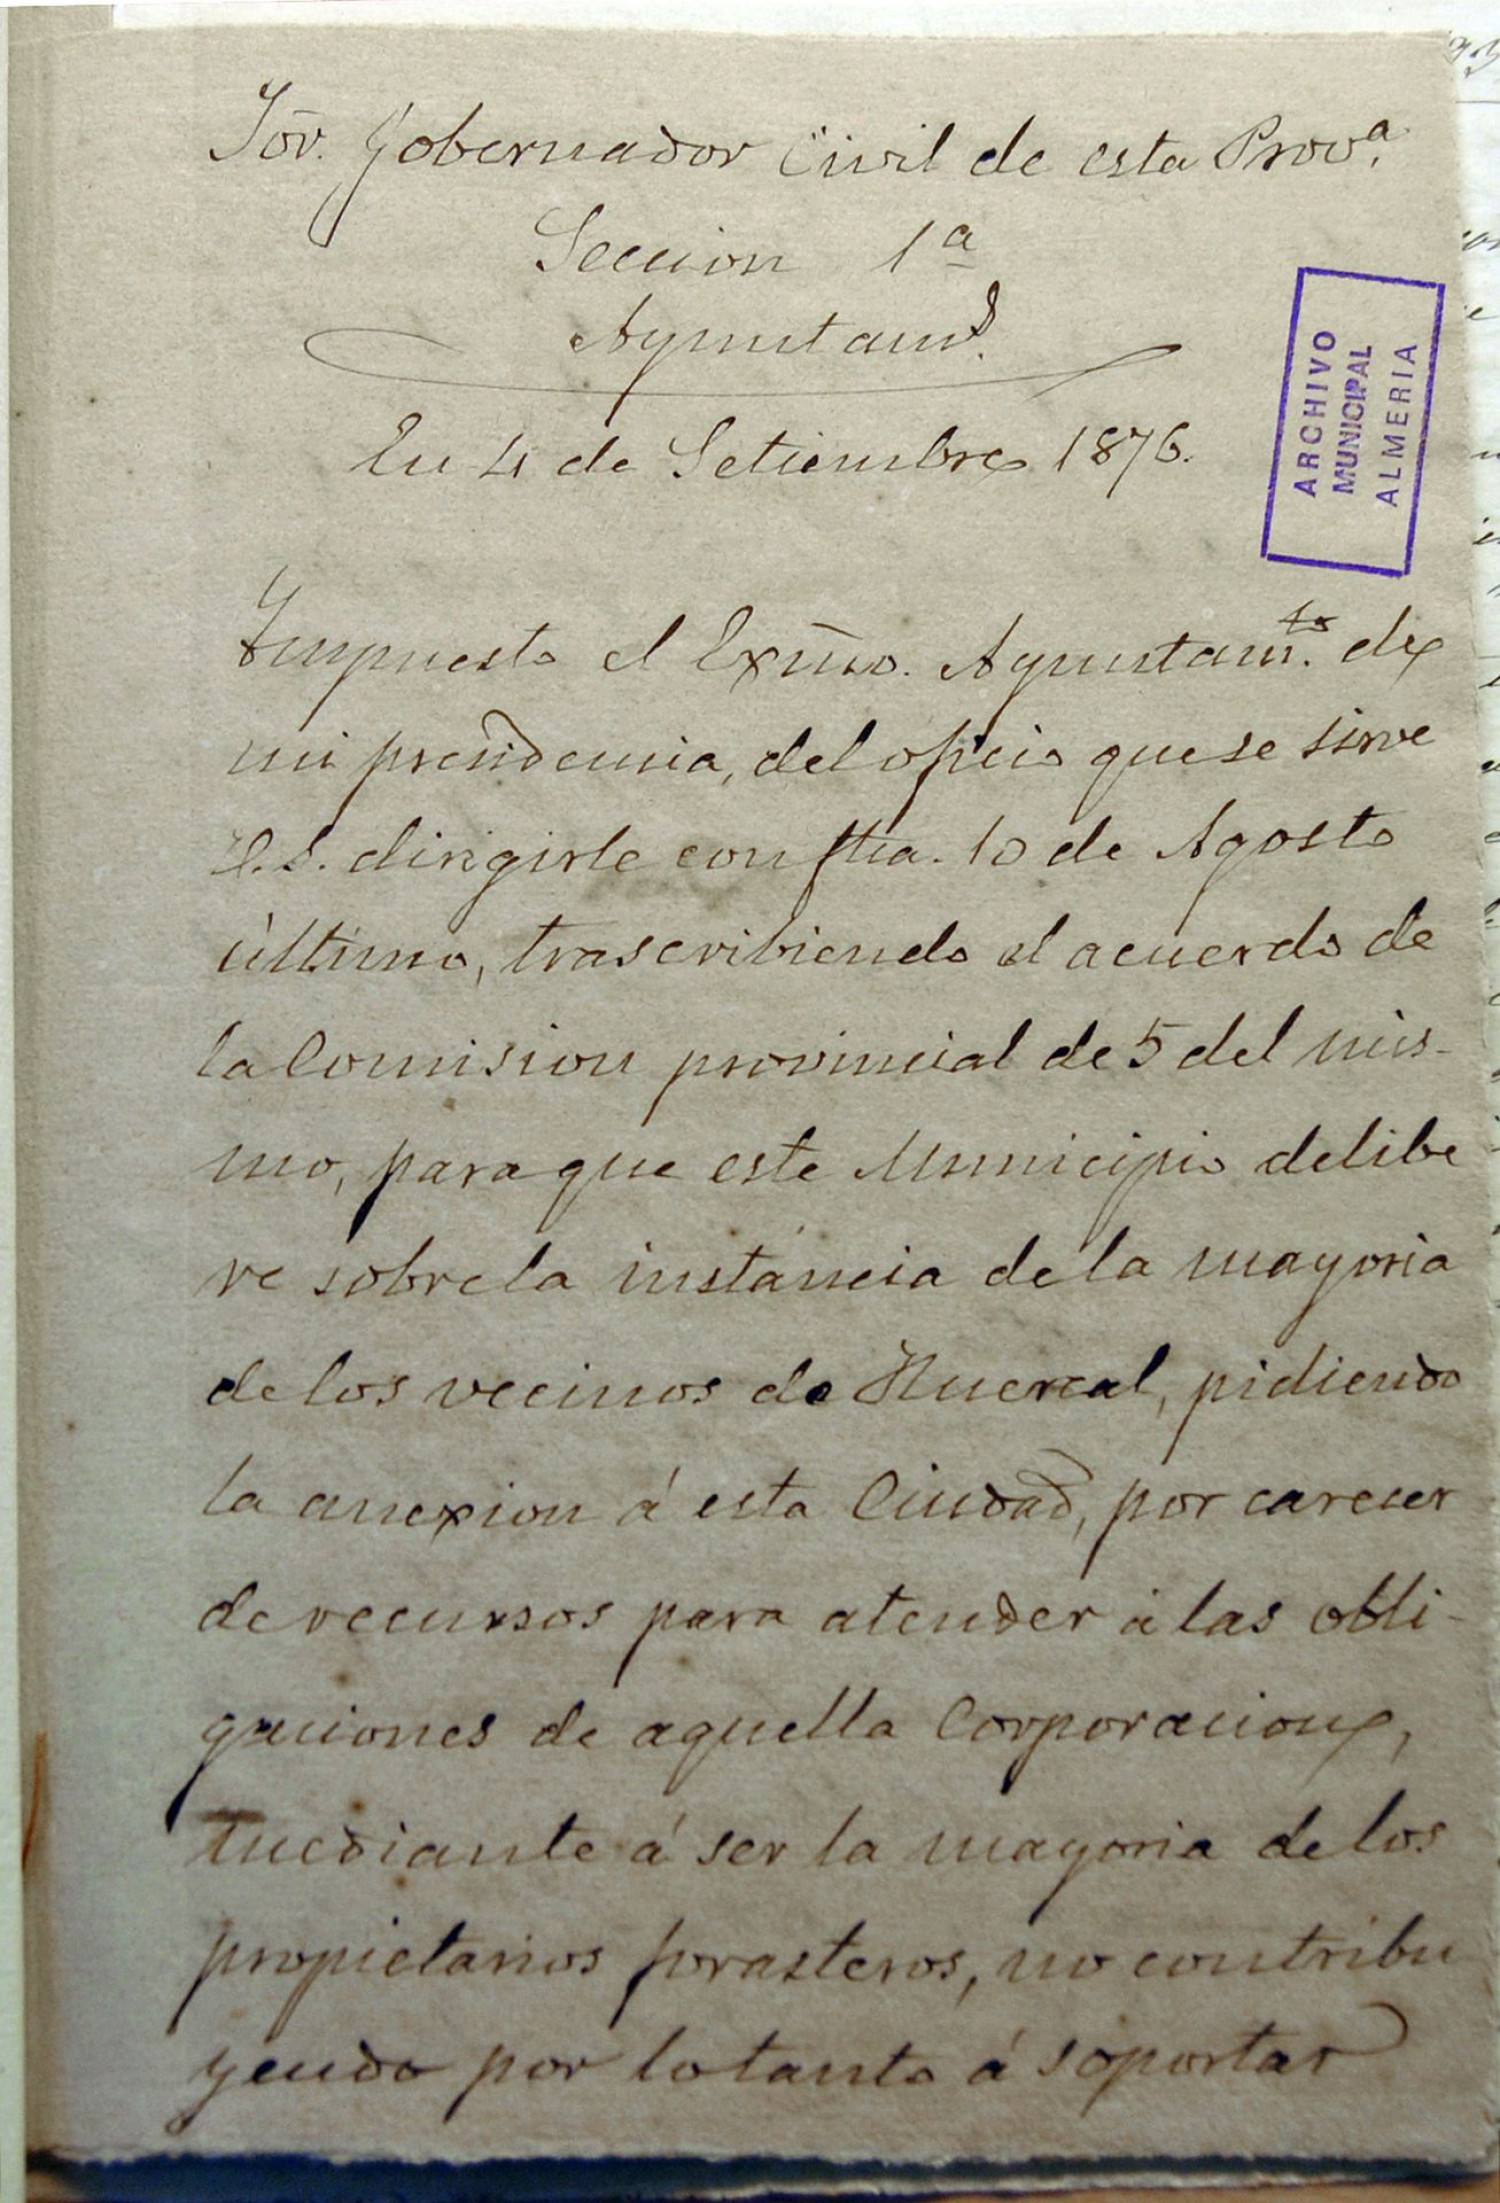 Sōr. Gobernador Civil de esta Provª.
Seccion 1ª
Ayuntams.
En 4 de Setiembre 1876.
ARCHIVO
MUNICIPAL
ALMERIA
Impuesto el Exmo. Ayuntamto. de
mi presidencia, del oficio que se sirve
V.S. dirigirle con fha. 10 de Agosto
último, trascribiendo el acuerdo de
la Comision provincial de 5 del mis-
mo, para que este Municipio delibe
re sobre la instancia de la mayoria
de los vecinos de Huercal, pidiendo
la anexion á esta Ciudad, por carecer
de recursos para atender á las obli-
gaciones de aquella Corporacion,
mediante á ser la mayoria de los
propietarios forasteros, no contribu
yendo por lo tanto á soportar